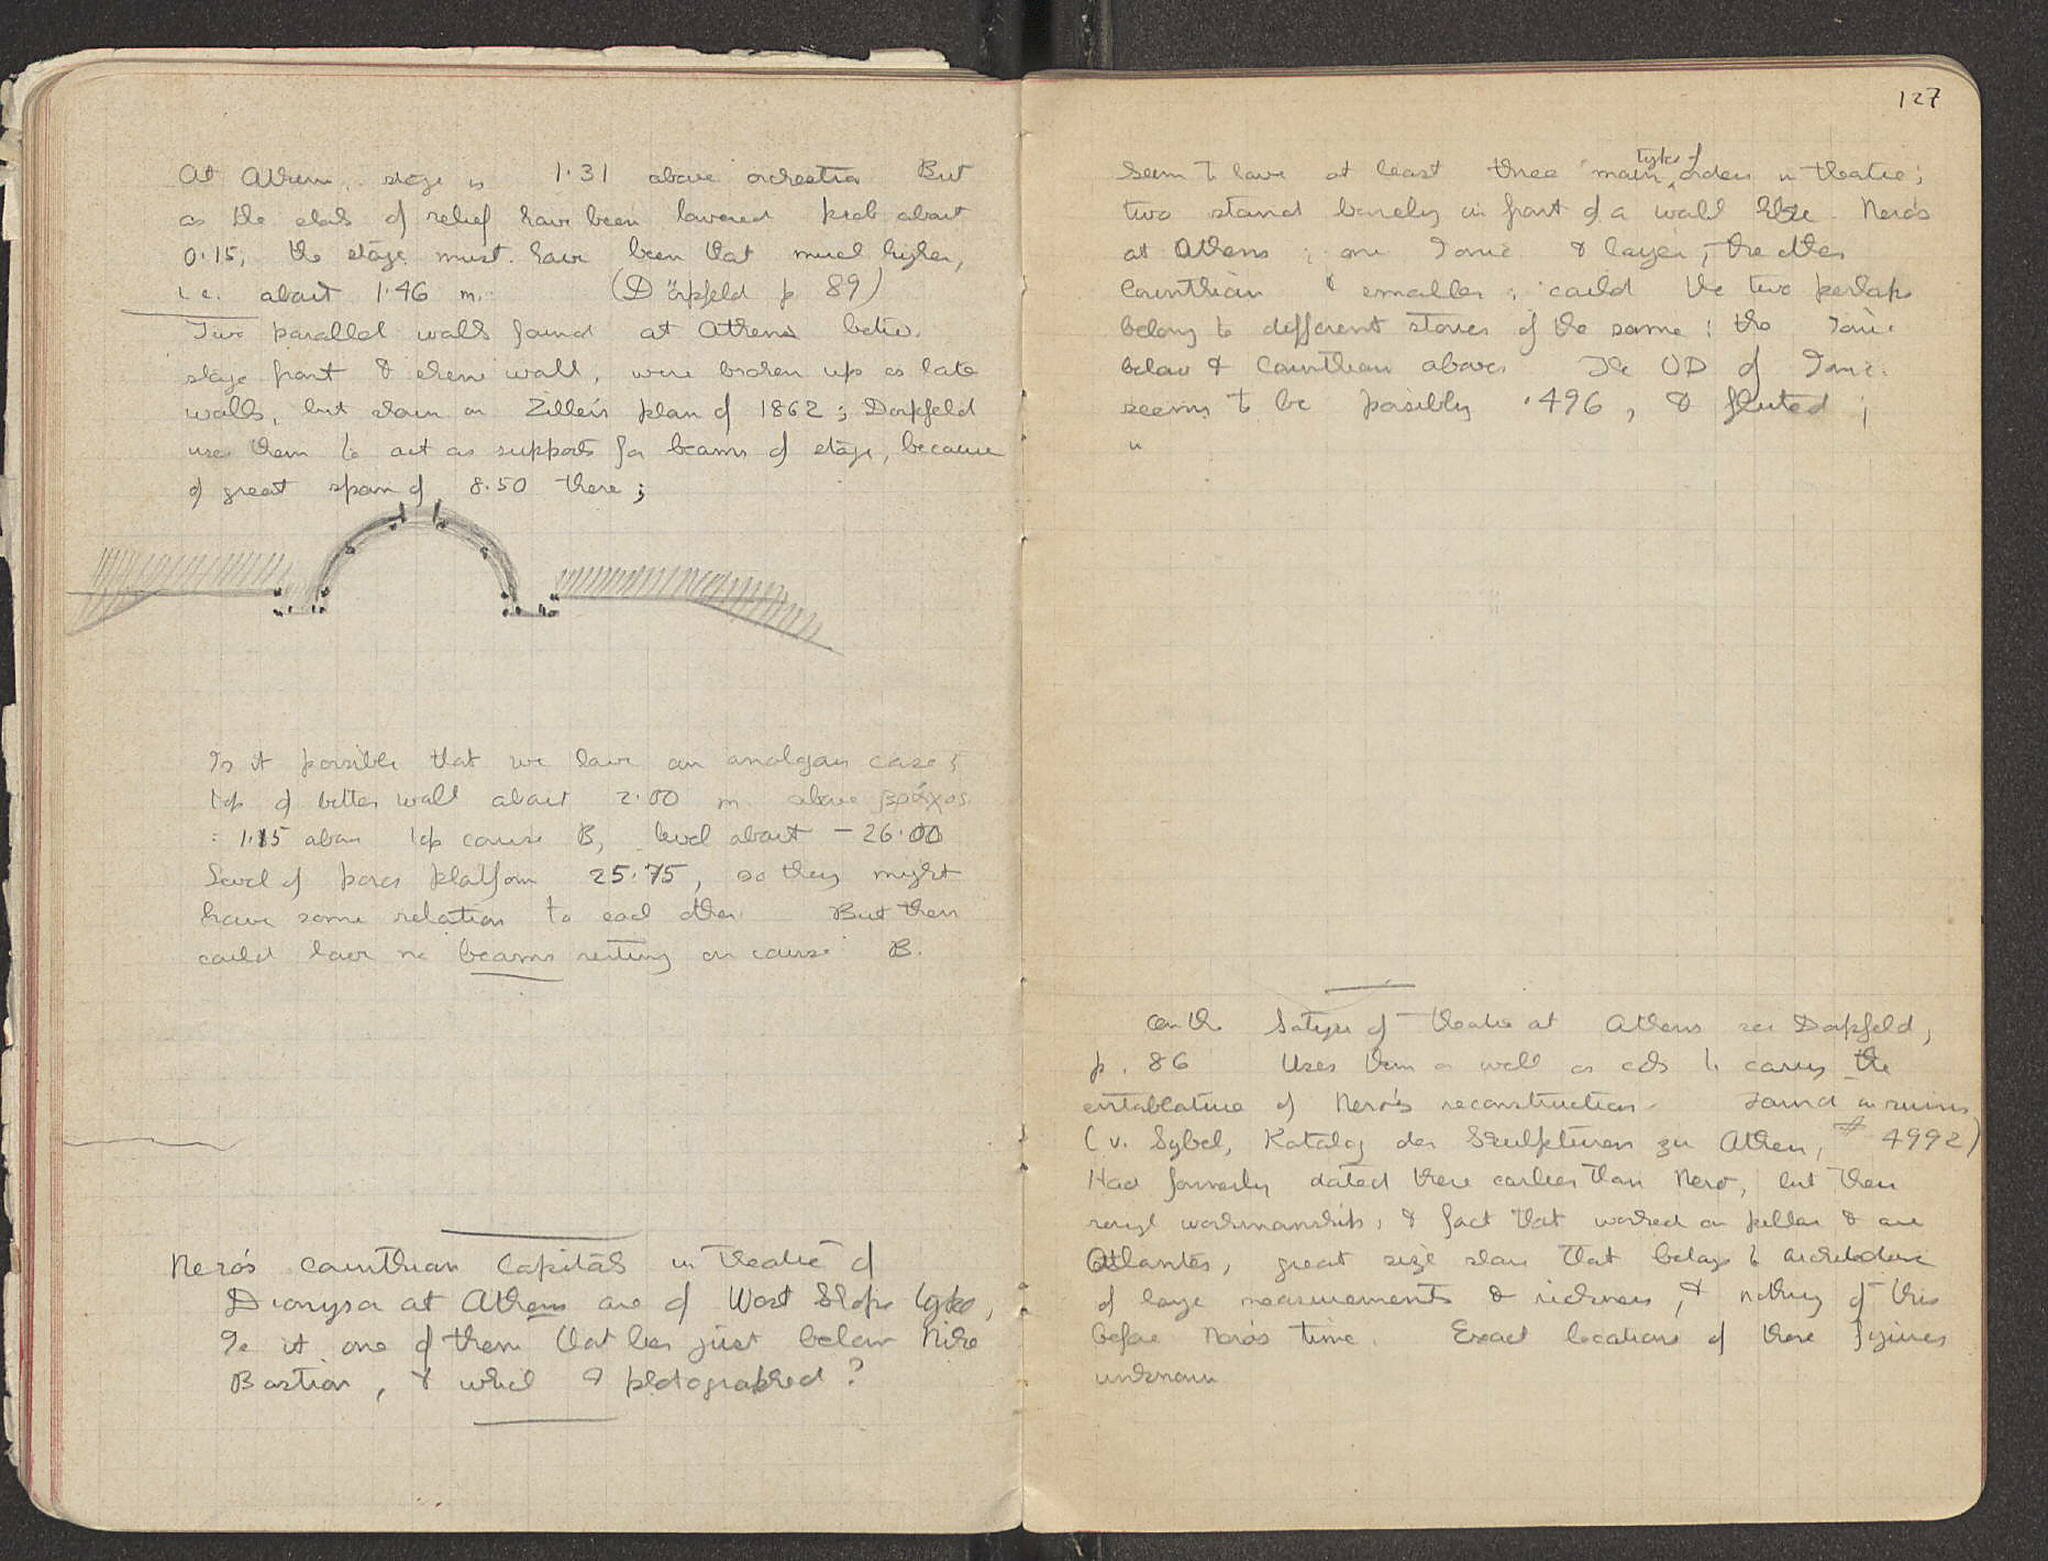 At Athens, stage is 1.31 above orchestra But
as the slabs of relief have been lowered prob about
0.15, the stage must have been that much higher,
i.e. about 1.46 m. (Dörpfeld p 89)
Two parallel walls found at Athens betw.
stage front & skene wall, were broken up as late
walls, but shown on Ziller's plan of 1862; Dorpfeld
uses them to act as supports for beams of stage, because
of great span of 8.50 there;
Is it possible that we have an analgous case;
top of better wall about 2.00 m. above βράχος
= 1.15 above top course B, level about - 26.00
Level of poros platform 25.75, so they might
have some relation to each other. But then
could have no beams resting on course B.
Nero's Corinthian Capitals in theatre of
Dionysos at Athens are of West Slope type,
Is it one of them that lies just below Nike
Bastion, & which I photographed?
127
Seem to have at least three main types of orders in theatre;
two stand barely in front of a wall like Nero's
at Athens; one Ionic & larger, the other
Corinthian & smaller; could the two perhaps
belong to different stories of the same; the Ionic
below & Corinthian above. The UD of Ionic
seems to be possibly .496, & fluted;
On the Satyrs of theatre at Athens see Dorpfeld,
p. 86 Uses them as well as cols to carry the
entablature of Nero's reconstruction. Found in ruins
(v. Sybel, Katalog der Sculpturen zu Athen, # 4992)
Had formerly dated these earlier than Nero, but their
rough workmanship, & fact that worked on pillar & are
Atlantes, great size show that belongs to architecture
of large measurements & richness, & nothing of this
before Nero's time. Exact locations of these figures
unknown